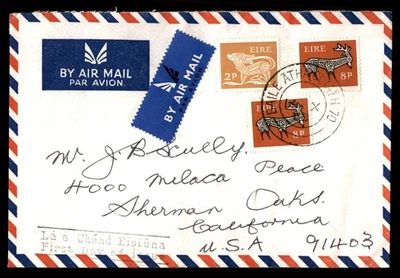 BY AIR MAIL
PAR AVION
BY AIR MAIL
EIRE
2P
EIRE
8P
EIRE
8P
ILE ÁTH
X
70
Mr. J. B. Scully.
4000 Melaca Peace
Sherman Oaks.
California
U.S.A 91403
Lá a Chéad Eisiúna
First Day of Issue